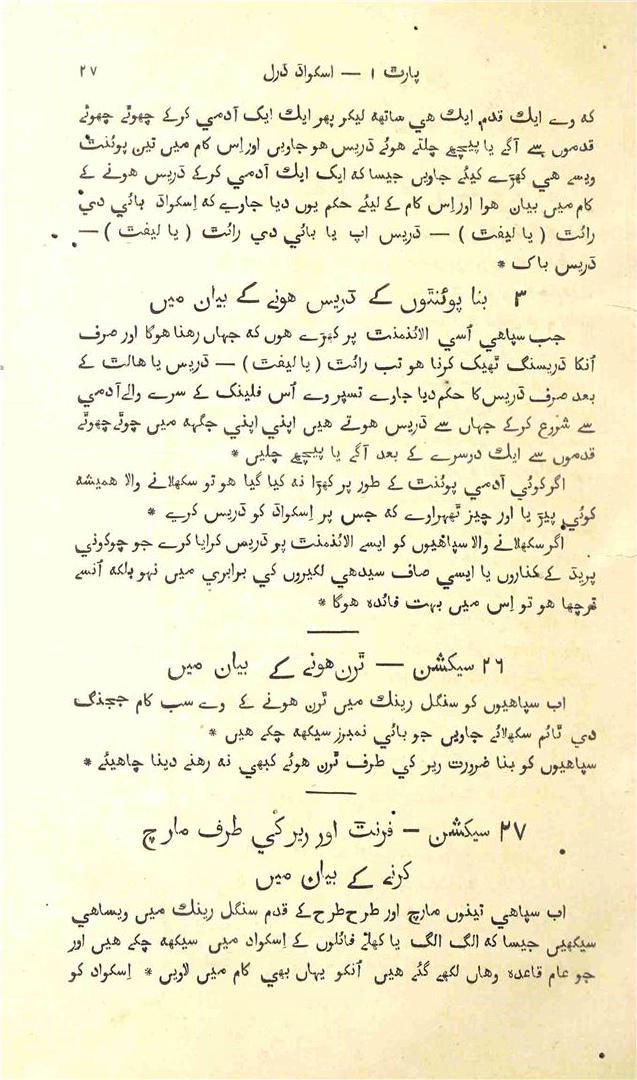 پارٹ ١ — اسکواڈ ڈرل ٢٧
که وے ایك قدم ایك هي ساتهه لیکر پهر ایك ایک آدمي کرکے چهوٹے چهوٹے
قدموں سے آگے یا پیچهے چلتے هوئے ڈریس هو جاویں اور اِس کام میں تین پوئنٹ
ویسے هي کهڑے کیئے جاویں جیسا که ایک ایك آدمي کرکے ڈریس هونے کے
کام میں بیان هوا اور اِس کام کے لیئے حکم یوں دیا جاوے که اِسکواڈ بائي دي
رائٹ ( یا لیفٹ ) — ڈریس اپ یا بائي دي رائٹ ( یا لیفٹ ) —
ڈریس باک *
٣ بنا پوئنٹوں کے ڈریس هونے کے بیان میں
جب سپاهي اُسي الائنمنٹ پر کهڑے هوں که جہاں رهنا هوگا اور صرف
اُنکا ڈریسنگ ٹهیک کرنا هو تب رائٹ ( یا لیفٹ ) — ڈریس یا هالٹ کے
بعد صرف ڈریس کا حکم دیا جاوے تسپر وے اُس فلینک کے سرے والے آدمي
سے شروع کرکے جہاں سے ڈریس هوتے هیں اپني اپني جگهه میں چوٹے چهوٹے
قدموں سے ایك دوسرے کے بعد آگے یا پیچهے چلیں *
اگر کوئي آدمي پوئنٹ کے طور پر کهڑا نه کیا گیا هو تو سکهلانے والا همیشه
کوئي پیڑ یا اور چیز ٹهہراوے که جس پر اِسکواڈ کو ڈریس کرے *
اگر سکهلانے والا سپاهیوں کو ایسے الائنمنٹ پر ڈریس کرایا کرے جو چوکوني
پریڈ کے کناروں یا ایسي صاف سیدهي لکیروں کي برابري میں نہو بلکه اُنسے
ترچها هو تو اِس میں بہت فائده هوگا *
٢٦ سیکشن — ٹرن هونے کے بیان میں
اب سپاهیوں کو سنگل رینك میں ٹرن هونے کے وے سب کام ججنگ
دي ٹائم سکهلائے جاویں جو بائي نمبرز سیکهه چکے هیں *
سپاهیوں کو بنا ضرورت ریر کي طرف ٹرن هوئے کبهي نه رهنے دینا چاهیئے *
٢٧ سیکشن — فرنٹ اور ریر کي طرف مارچ
کرنے کے بیان میں
اب سپاهي تینوں مارچ اور طرح طرح کے قدم سنگل رینك میں ویساهي
سیکهیں جیسا که الگ الگ یا کهلے فائلوں کے اِسکواڈ میں سیکهه چکے هیں اور
جو عام قاعده وهاں لکهے گئے هیں اُنکو یہاں بهي کام میں لاویں * اِسکواڈ کو